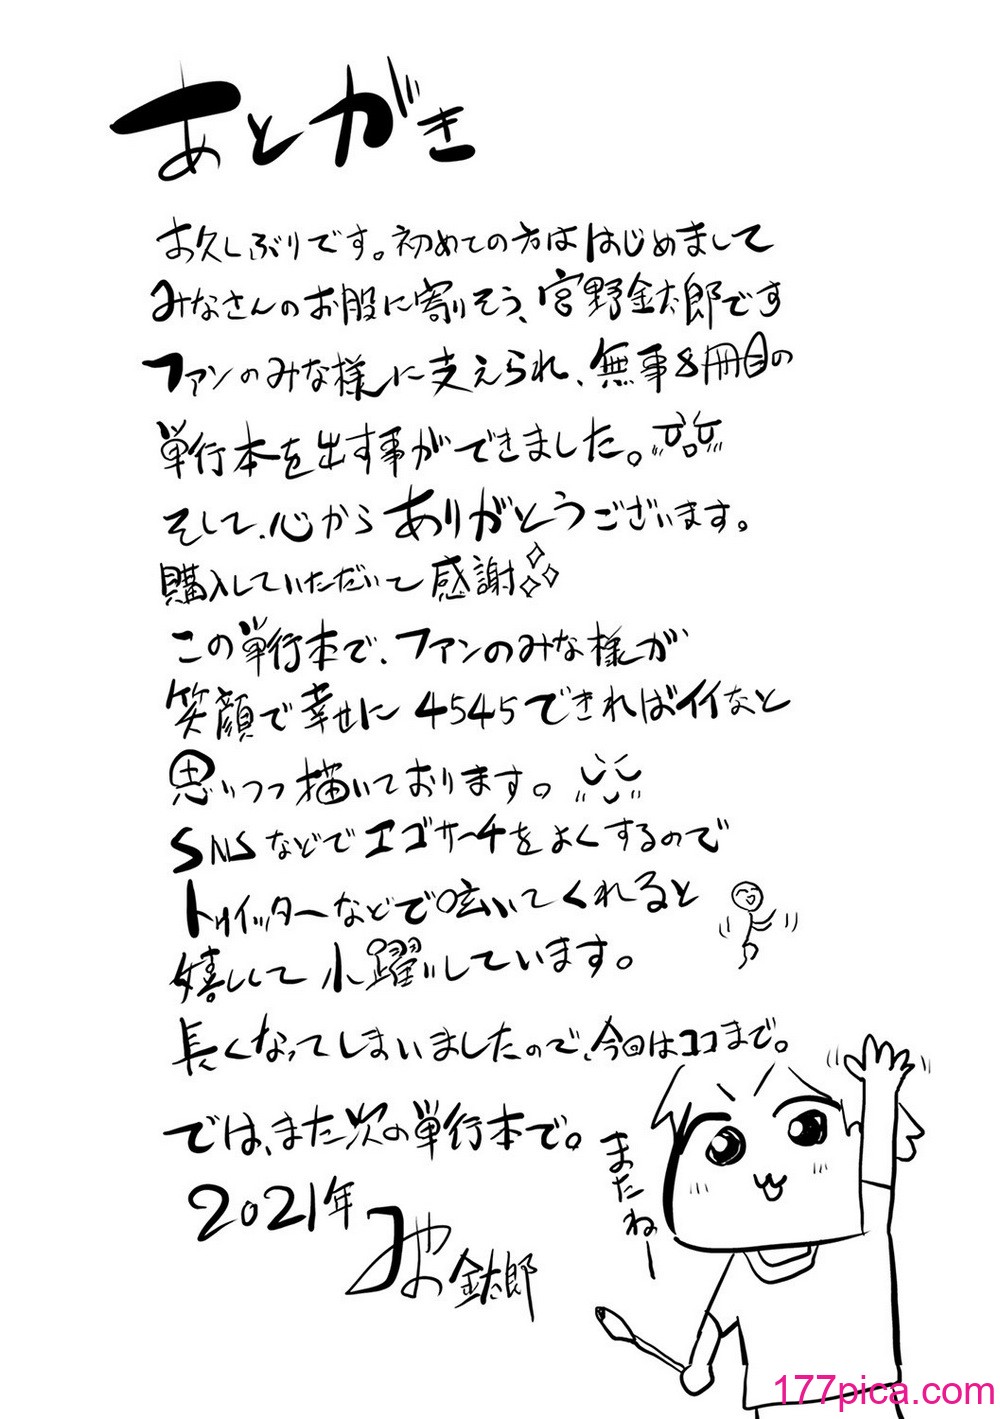 あとがき
お久しぶりです。初めての方ははじめまして
みなさんのお股に割りそう、宮野金太郎です
ファンのみな様に支えられ、無事8冊目の
単行本を出す事ができました。
そして、心からありがとうございます。
購入していただいて感謝
この単行本で、ファンのみな様が
笑顔で幸せに4545できればイイなと
思いつつ描いております。
SNSなどでエゴサーチをよくするので
トゥイッターなどで呟いてくれると
嬉しくて小躍りしています。
長くなってしまいましたので、今回はココまで。
では、また次の単行本で。
2021年
みやの金太郎
またねー
177pica.com